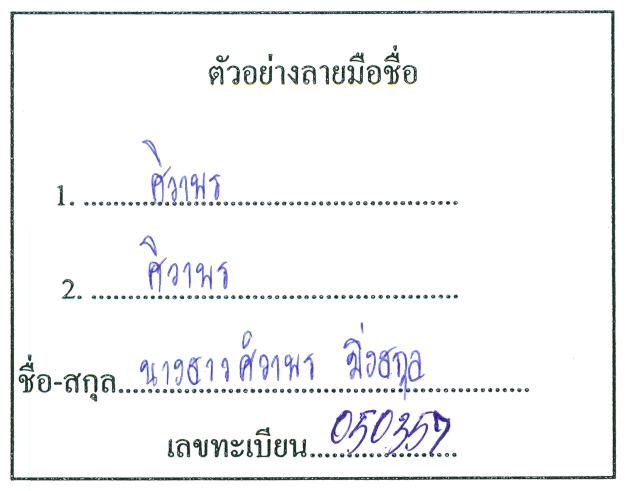 ตัวอย่างลายมือชื่อ
1. ศิวาพร
2. ศิวาพร
ชื่อ-สกุล นางสาวศิวาพร มิ่งสกุล
เลขทะเบียน 050357